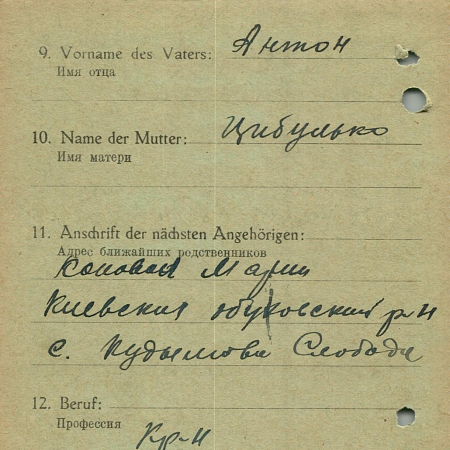 9. Vorname des Vaters: Антон
Имя отца
10. Name der Mutter: Цибулько
Имя матери
11. Anschrift der nächsten Angehörigen:
Адрес ближайших родственников
Мария
Киевская обуховский р-н
с. Слобода
12. Beruf:
Профессия
Кр-н